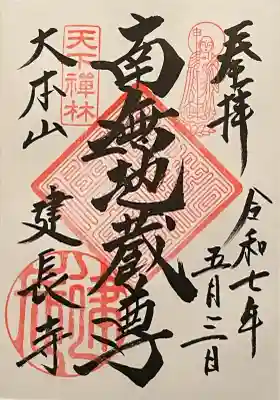 奉拝
令和七年
五月三日
南無地蔵尊
天下禅林
大本山
建長寺